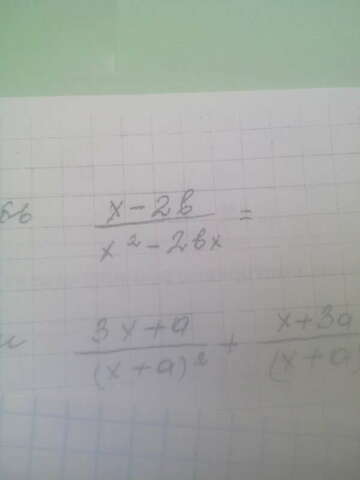 x-2b
/
x²-2bx =
3x+a
/
(x+a)² +
x+3a
/
(x+a)